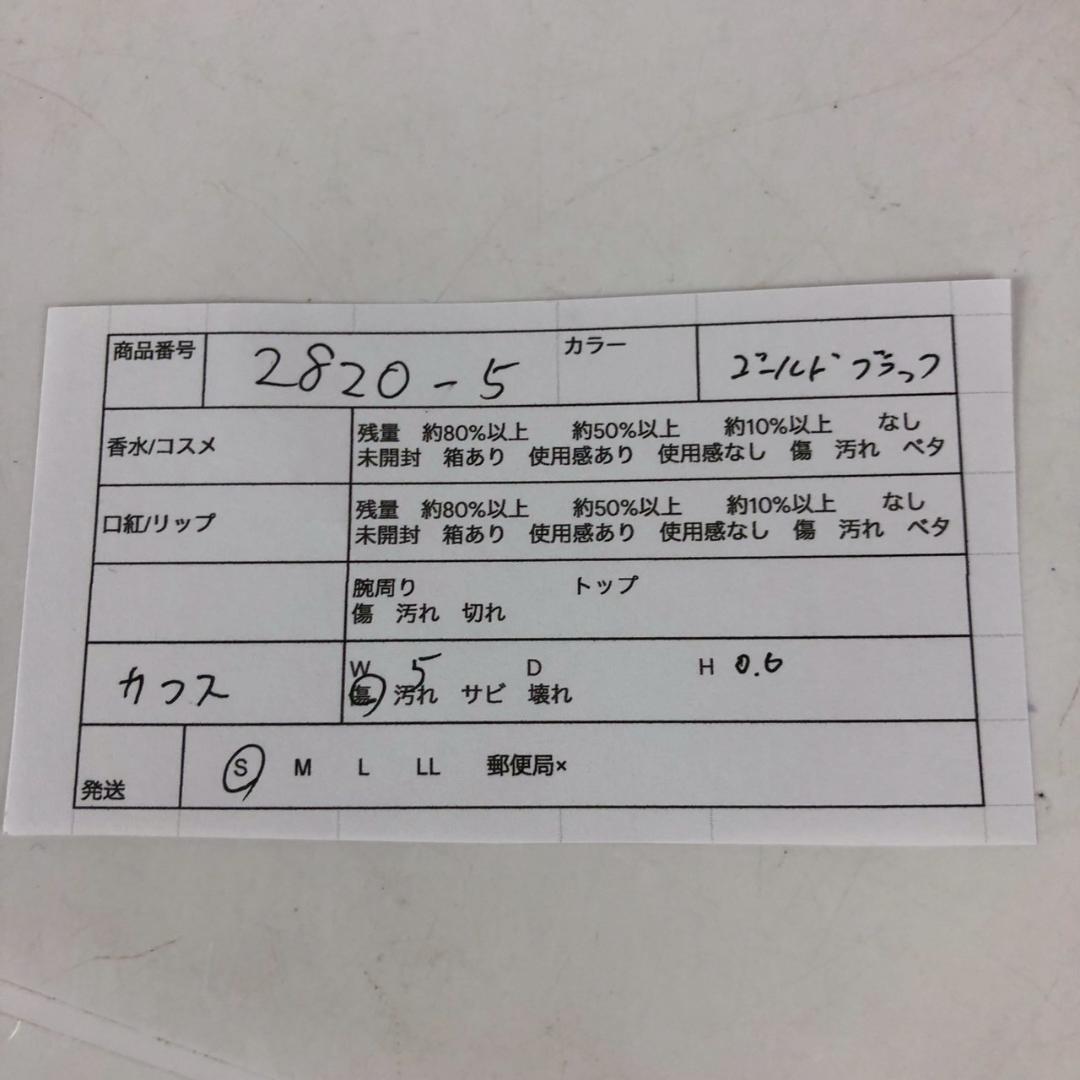 商品番号 2820-5 カラー ゴールドブラック
香水/コスメ
残量 約80%以上 約50%以上 約10%以上 なし
未開封 箱あり 使用感あり 使用感なし 傷 汚れ ベタ
口紅/リップ
残量 約80%以上 約50%以上 約10%以上 なし
未開封 箱あり 使用感あり 使用感なし 傷 汚れ ベタ
腕周り トップ
傷 汚れ 切れ
カフス
W 5 D H 0.6
傷 汚れ サビ 壊れ
発送 S M L LL 郵便局×